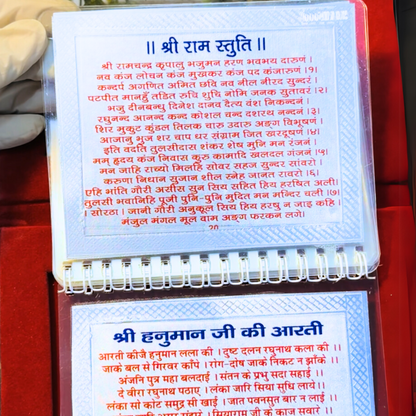 ॥ श्री राम स्तुति ॥
श्री रामचन्द्र कृपालु भजुमन हरण भवभय दारुणं ।
नव कंज लोचन कंज मुखकर कंज पद कंजारुणं ।१।
कन्दर्प अगणित अमित छवि नव नील नीरद सुन्दरं ।
पटपीत मानहुँ तडित रुचि शुचि नोमि जनक सुतावरं ।२।
भजु दीनबन्धु दिनेश दानव दैत्य वंश निकन्दनं ।
रघुनन्द आनन्द कन्द कोशल चन्द दशरथ नन्दनं ।३।
शिर मुकुट कुंडल तिलक चारु उदारु अङ्ग विभूषणं ।
आजानु भुज शर चाप धर संग्राम जित खरदूषणं ।४।
इति वदति तुलसीदास शंकर शेष मुनि मन रंजनं ।
मम् हृदय कंज निवास कुरु कामादि खलदल गंजनं ।५।
मन जाहि राच्यो मिलहि सोवर सहज सुन्दर सांवरो ।
करुणा निधान सुजान शील स्नेह जानत रावरो ।६।
एहि भांति गौरी असीस सुन सिय सहित हिय हरषित अली।
तुलसी भवानिहि पूजी पुनि-पुनि मुदित मन मन्दिर चली ।७।
। सोरठा । जानी गौरी अनुकूल सिय हिय हरषु न जाइ कहि ।
मंजुल मंगल मूल वाम अङ्ग फरकन लगे।
20
श्री हनुमान जी की आरती
आरती कीजै हनुमान लला की । दुष्ट दलन रघुनाथ कला की ।।
जाके बल से गिरवर काँपे । रोग-दोष जाके निकट न झाँके ।।
अंजनि पुत्र महा बलदाई । संतन के प्रभु सदा सहाई ।।
दे वीरा रघुनाथ पठाए । लंका जारि सिया सुधि लाये ।।
लंका सो कोट समुद्र सी खाई । जात पवनसुत बार न लाई ।।
सियाराम जी के काज सवारे ।